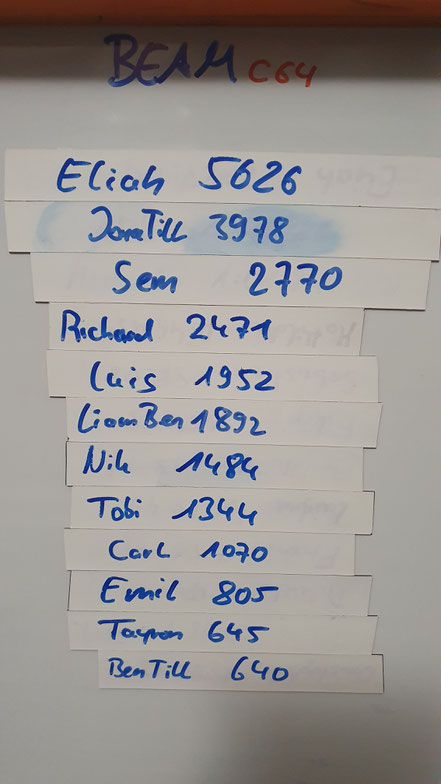 BEAM C64
Eliah 5626
JonaTill 3978
Sem 2770
Richard 2471
Luis 1952
LiamBen 1892
Nik 1484
Tobi 1344
Carl 1070
Emil 805
645
BenTill 640